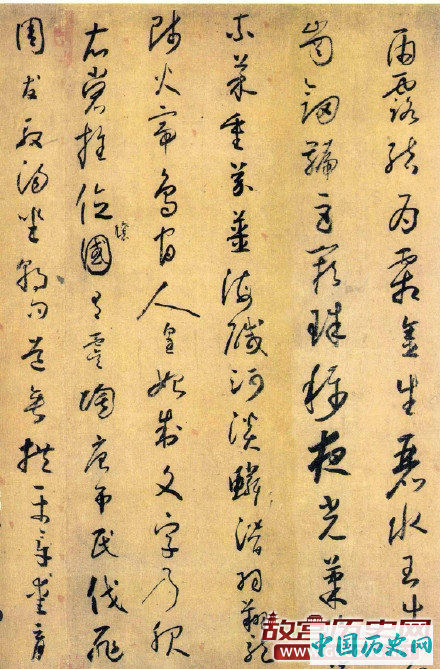 雨露結為霜金生麗水玉出
崗劍號巨闕珠稱夜光菓
柰菜重芥薑海鹹河淡鱗潛羽翔龍
師火帝鳥官人皇始制文字乃服
衣裳推位國有虞陶唐弔民伐罪
讓
周發殷湯坐朝問道垂拱平章愛育
故宫历史网
中国历史网